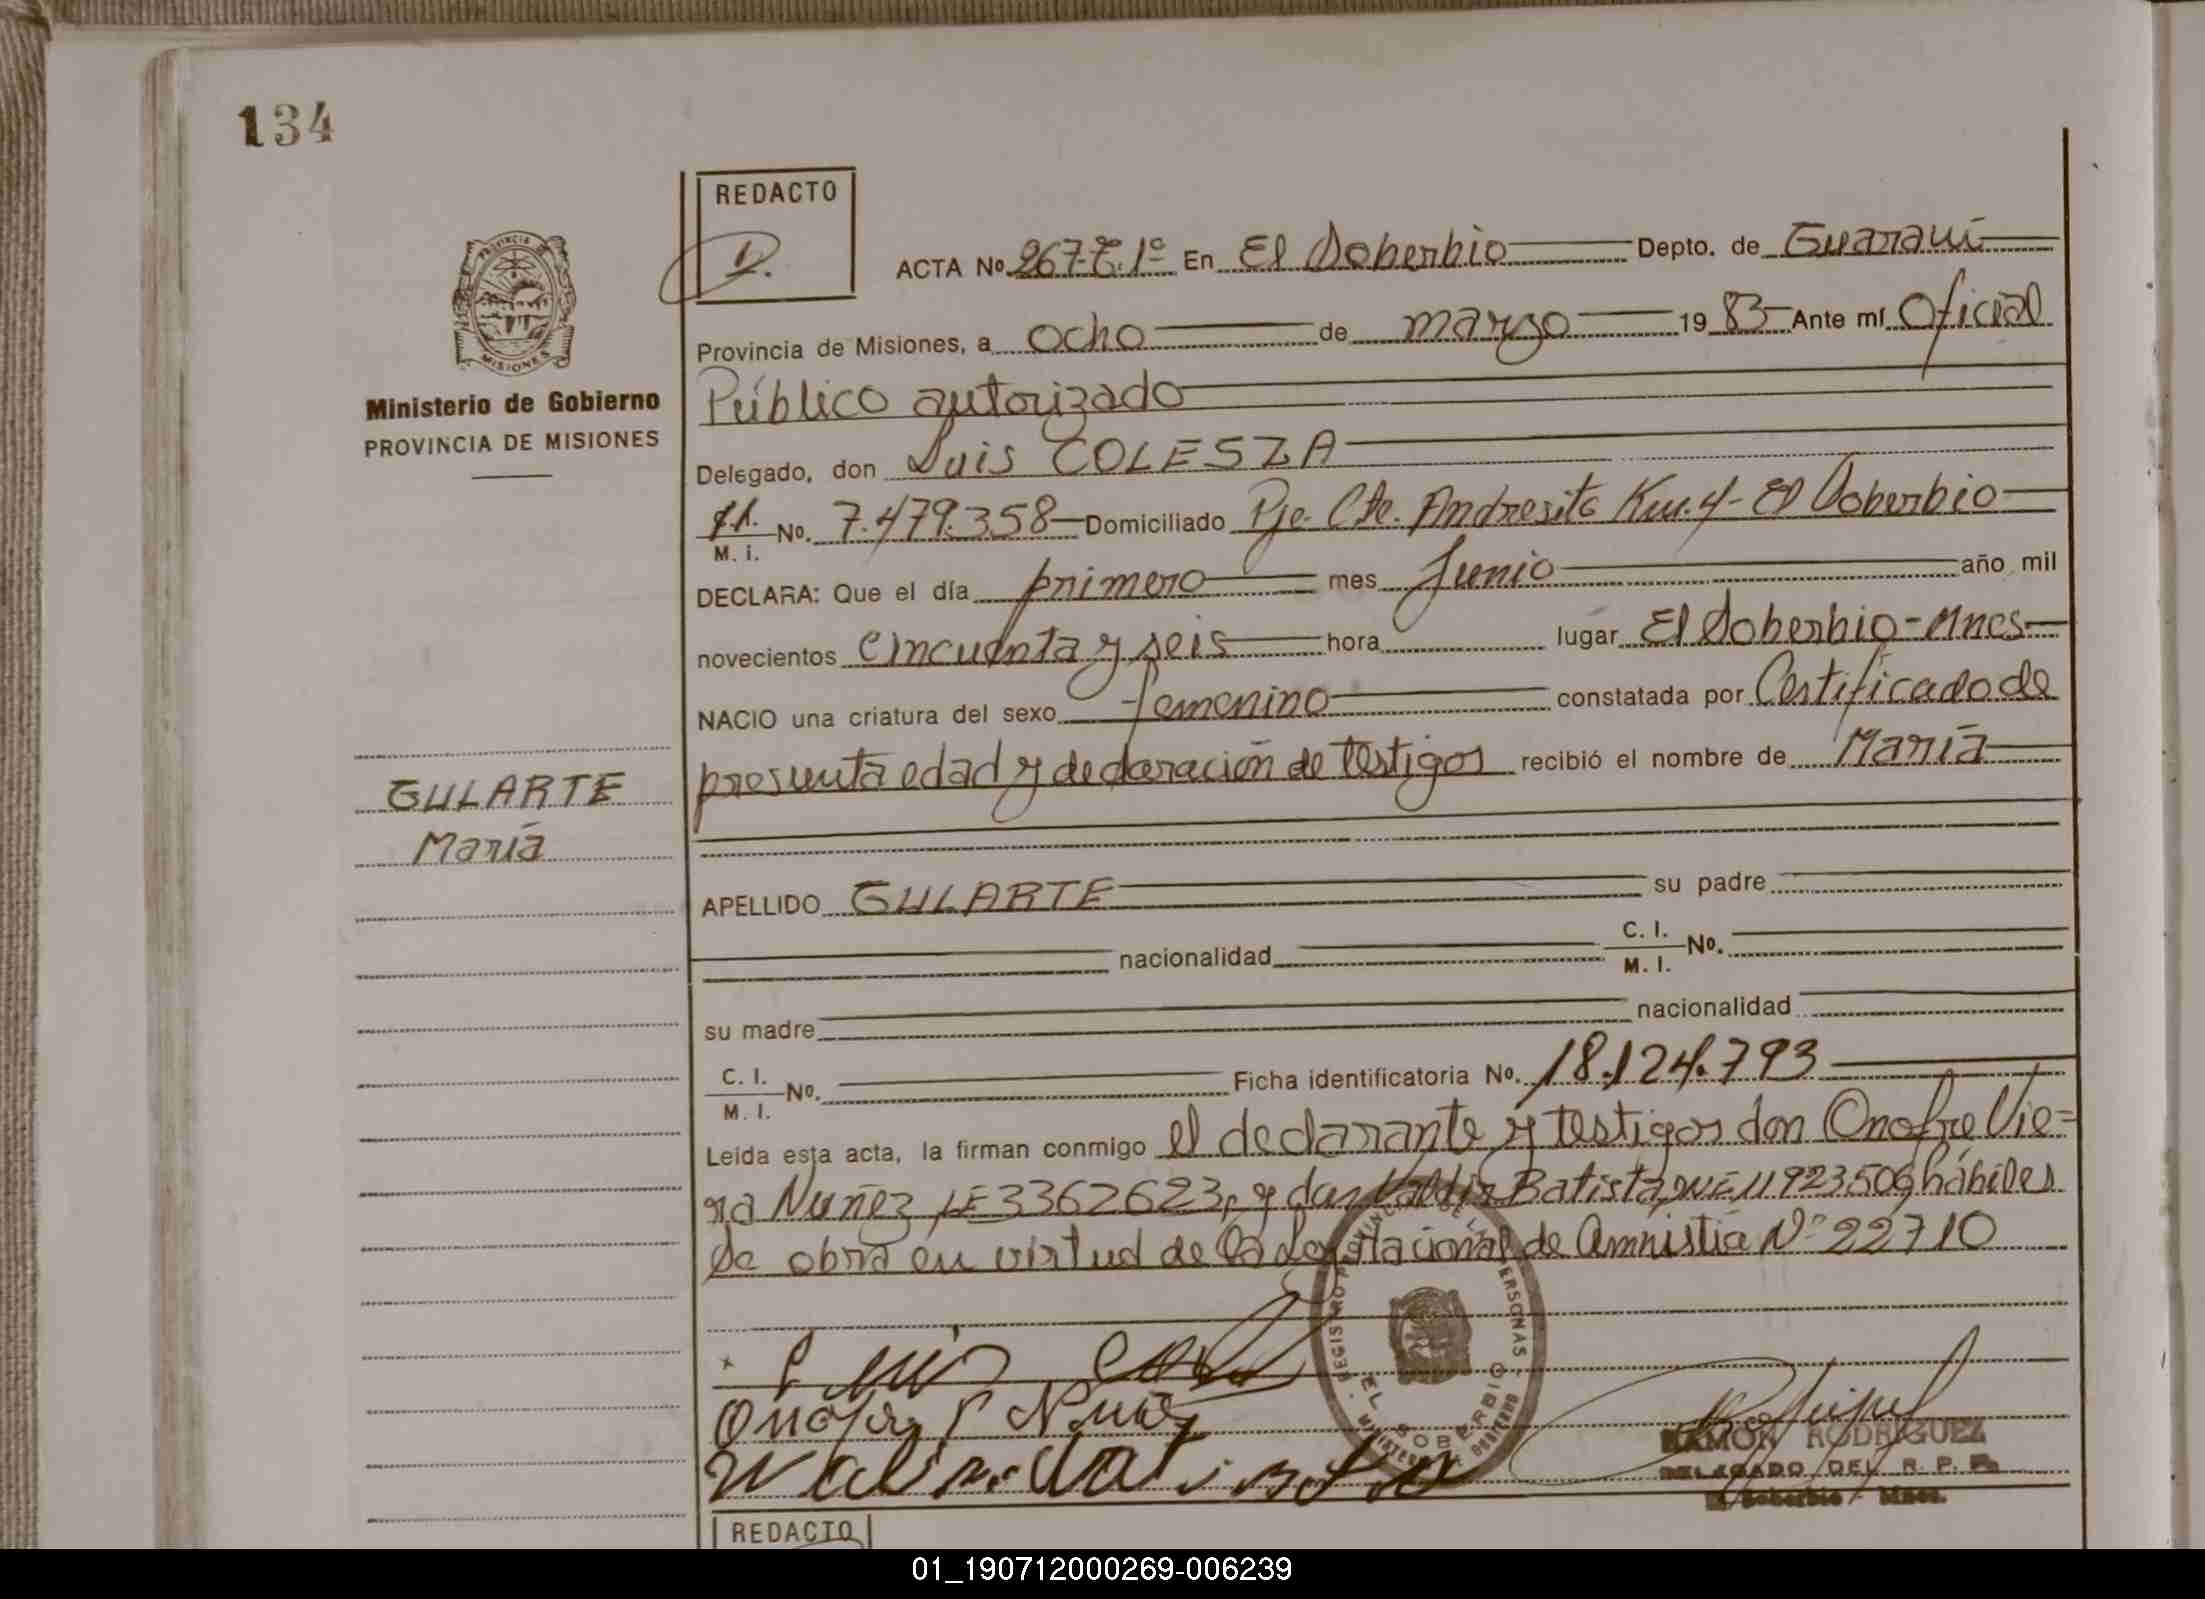 134
REDACTO
D.
PROVINCIA DE
MISIONES
Ministerio de Gobierno
PROVINCIA DE MISIONES
ACTA No 267-T.1º En El Soberbio Depto. de Guaraní
Provincia de Misiones, a ocho de marzo 1983 Ante mí Oficial
Público autorizado
Delegado, don Luis COLESZA
M. i. No. 7.479.358 Domiciliado Pje. Cte. Andresito Km. 4- El Soberbio
DECLARA: Que el día primero mes Junio año mil
novecientos cincuenta y seis hora lugar El Soberbio-Mnes
NACIO una criatura del sexo femenino constatada por Certificado de
presunta edad y declaración de testigos recibió el nombre de María
GULARTE
María
APELLIDO GULARTE su padre
nacionalidad C. I. M. I. No.
su madre nacionalidad
C. I. M. I. No. Ficha identificatoria No. 18.124.793
Leida esta acta, la firman conmigo el declarante y testigos don Onofre Vie=
ra Nuñez, LE 3362623, y don Valdir Batista, 11923506 hábiles
Se obra en virtud de la Ley Nacional de Amnistía Nº 22710
REGISTRO PROVINCIAL DE LAS PERSONAS
EL SOBERBIO
MINISTERIO DE GOBIERNO
RAMON RODRIGUEZ
DELEGADO DEL R. P. P.
El Soberbio - Mnes.
REDACTO
01_190712000269-006239